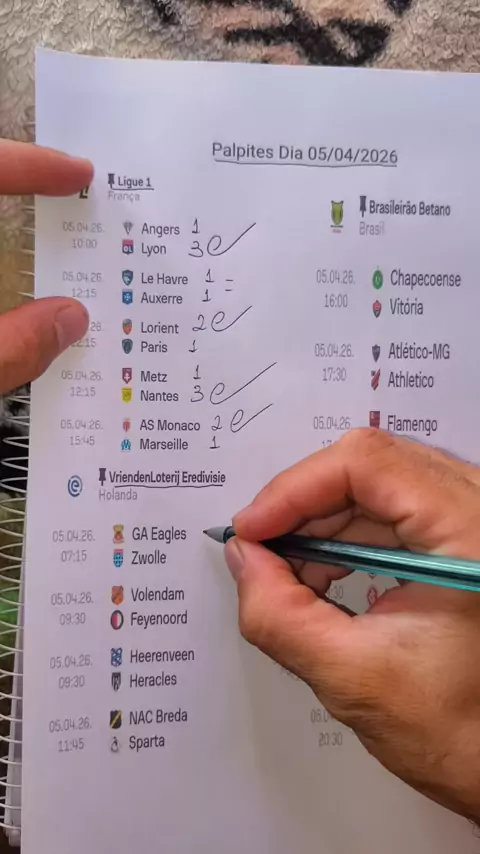 Palpites Dia 05/04/2026
Ligue 1
França
05.04.26. Angers 1
10:00 Lyon 3 e
05.04.26. Le Havre 1 =
12:15 Auxerre 1
Lorient 2 e
Paris 1
05.04.26. Metz 1
12:15 Nantes 3 e
05.04.26. AS Monaco 2 e
15:45 Marseille 1
VriendenLoterij Eredivisie
Holanda
05.04.26. GA Eagles
07:15 Zwolle
05.04.26. Volendam
09:30 Feyenoord
05.04.26. Heerenveen
09:30 Heracles
05.04.26. NAC Breda
11:45 Sparta
Brasileirão Betano
Brasil
05.04.26. Chapecoense
16:00 Vitória
05.04.26. Atlético-MG
17:30 Athletico
05.04.26. Flamengo
20:30